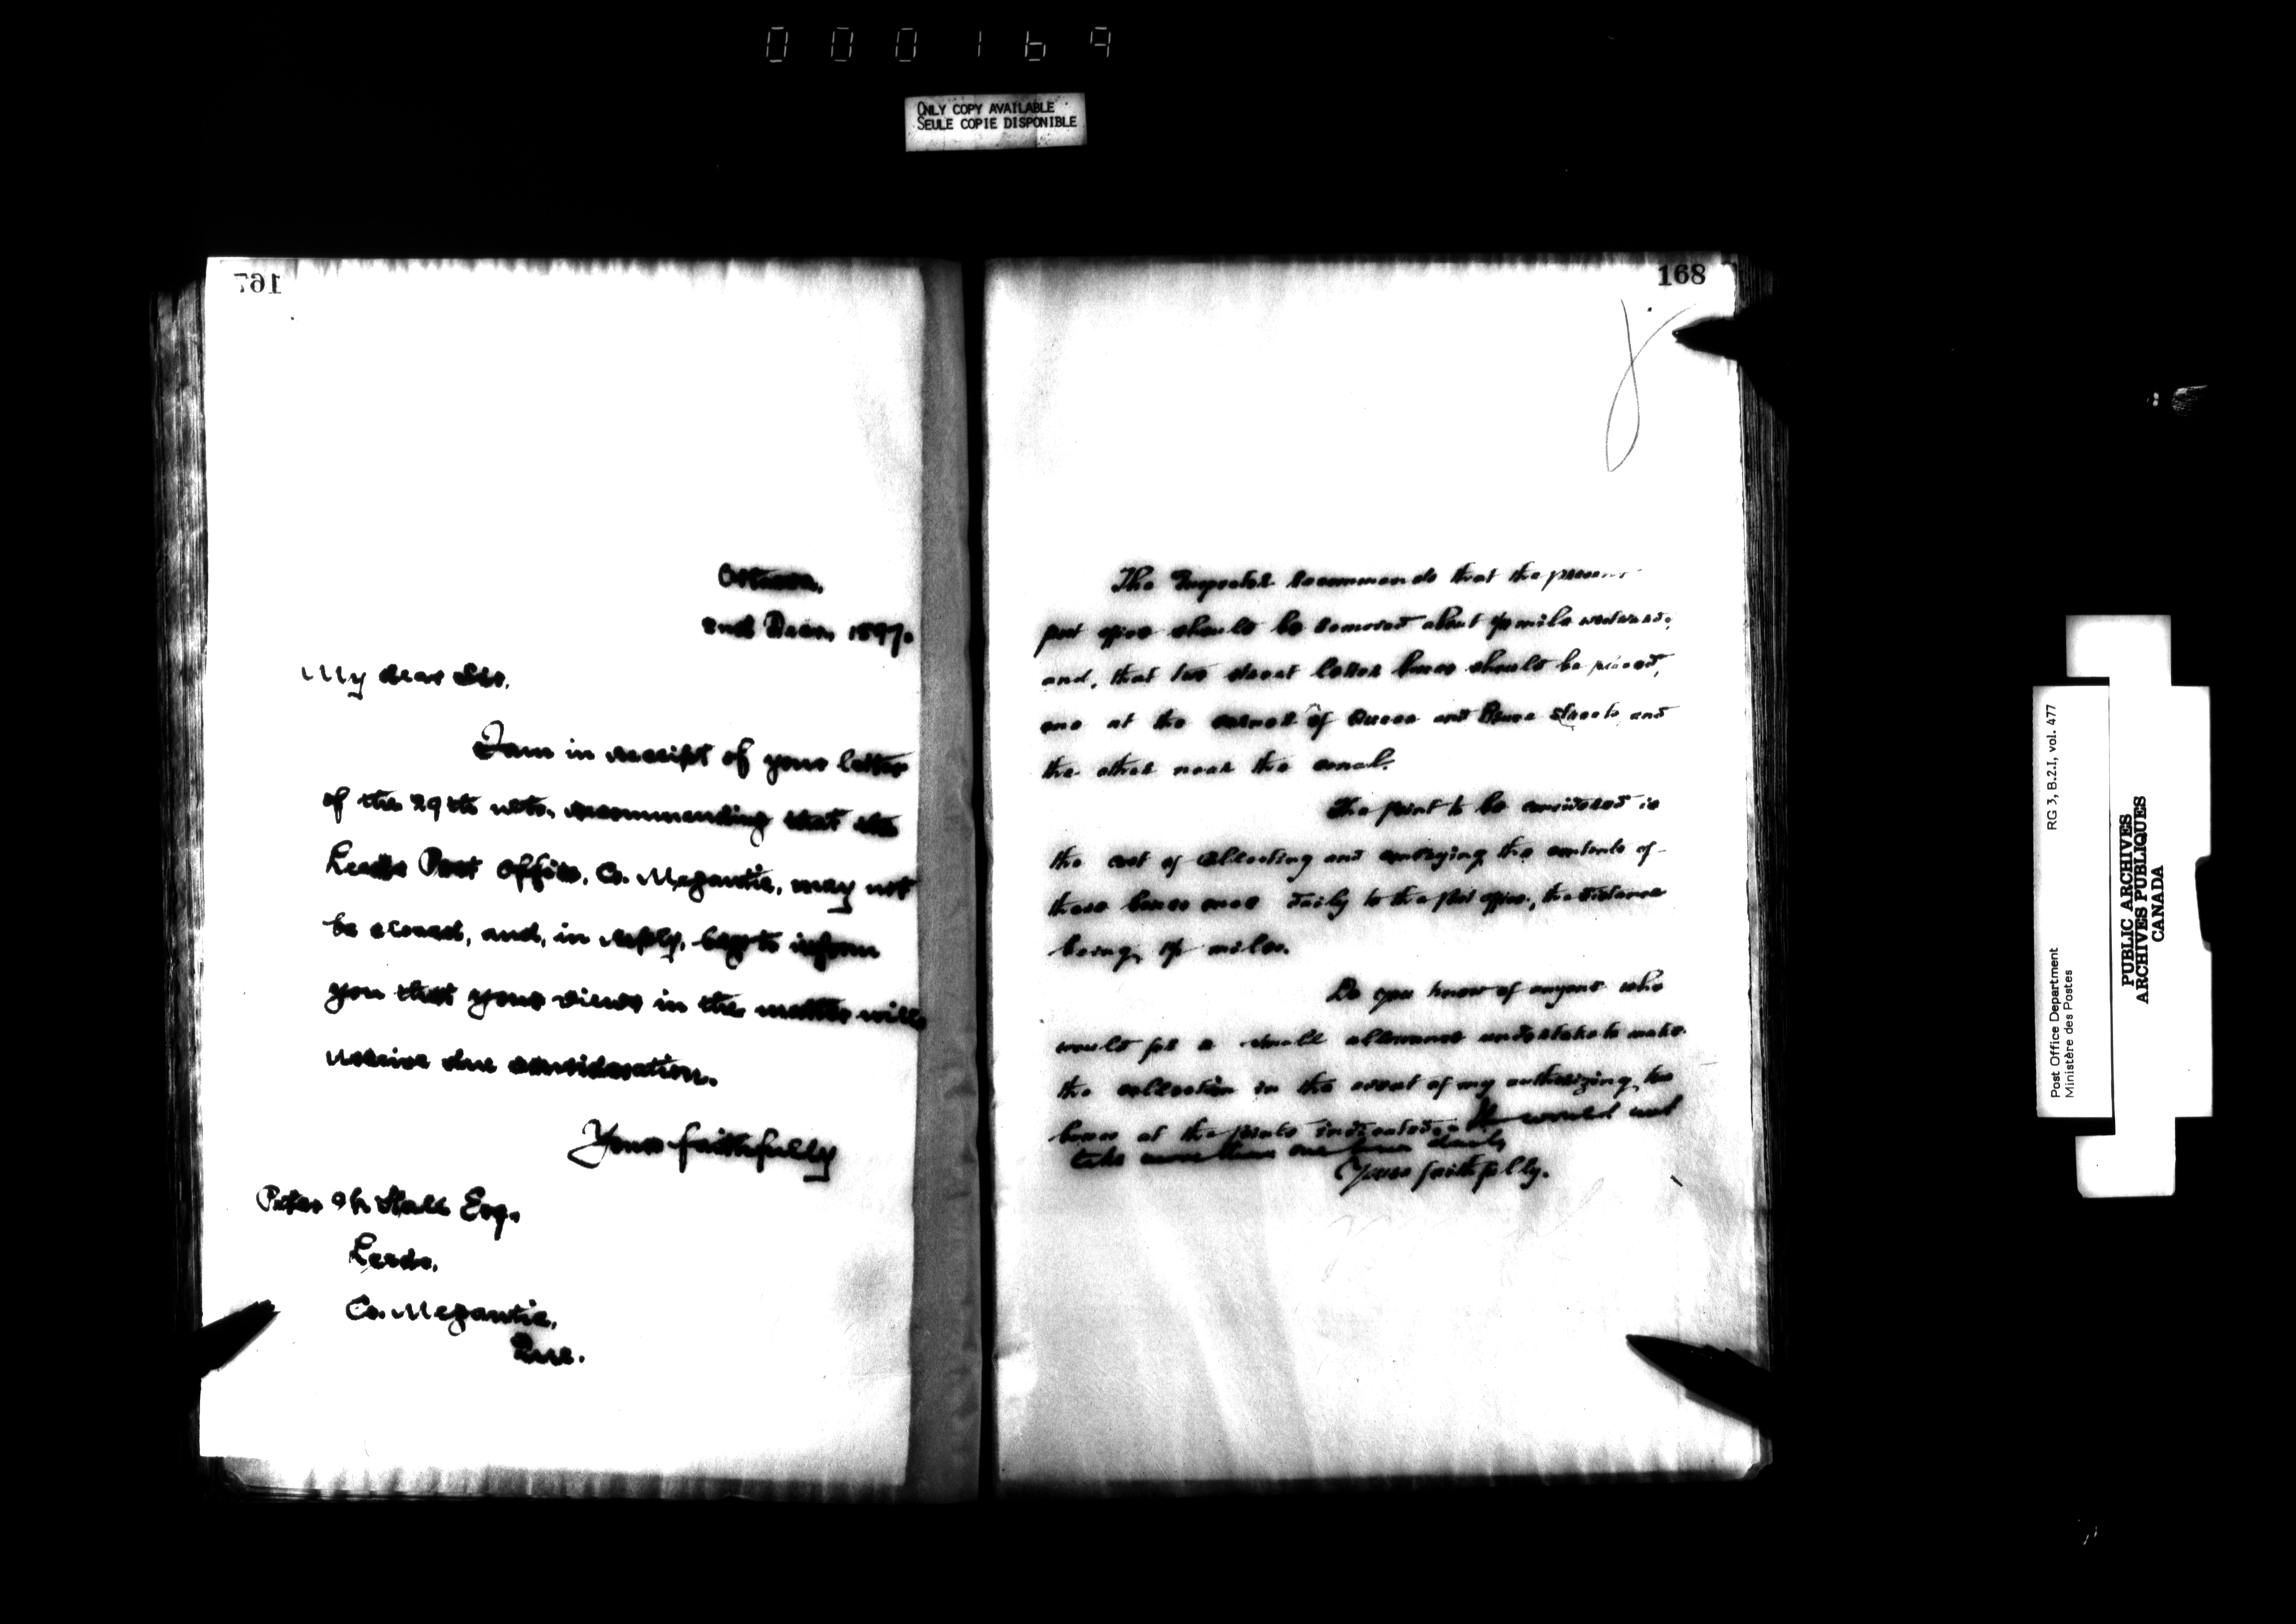 000169
ONLY COPY AVAILABLE
SEULE COPIE DISPONIBLE
167
Ottawa,
2nd Decr. 1897.
My dear Sir,
I am in receipt of your letter
of the 29th ulto. recommending that the
Leeds Post Office, Co. Megantic, may not
be closed, and, in reply, beg to inform
you that your views in the matter will
receive due consideration.
Yours faithfully
Peter Hall Esq.
Leeds,
Co. Megantic,
Que.
168
The Inspector recommends that the present
post office should be removed about mile westward,
and, that two street letter boxes should be placed,
one at the corner of Queen and Streets and
the other near the canal.
The point to be considered is
the cost of collecting and conveying the contents of
these boxes once daily to the post office, the distance
being miles.
Do you know of anyone who
would for a small allowance undertake to make
the collection in the event of my authorizing two
boxes at the points indicated. It would not
take more than one hour daily
Yours faithfully.
RG 3, B.2.I, vol. 477
Post Office Department
Ministère des Postes
PUBLIC ARCHIVES
ARCHIVES PUBLIQUES
CANADA